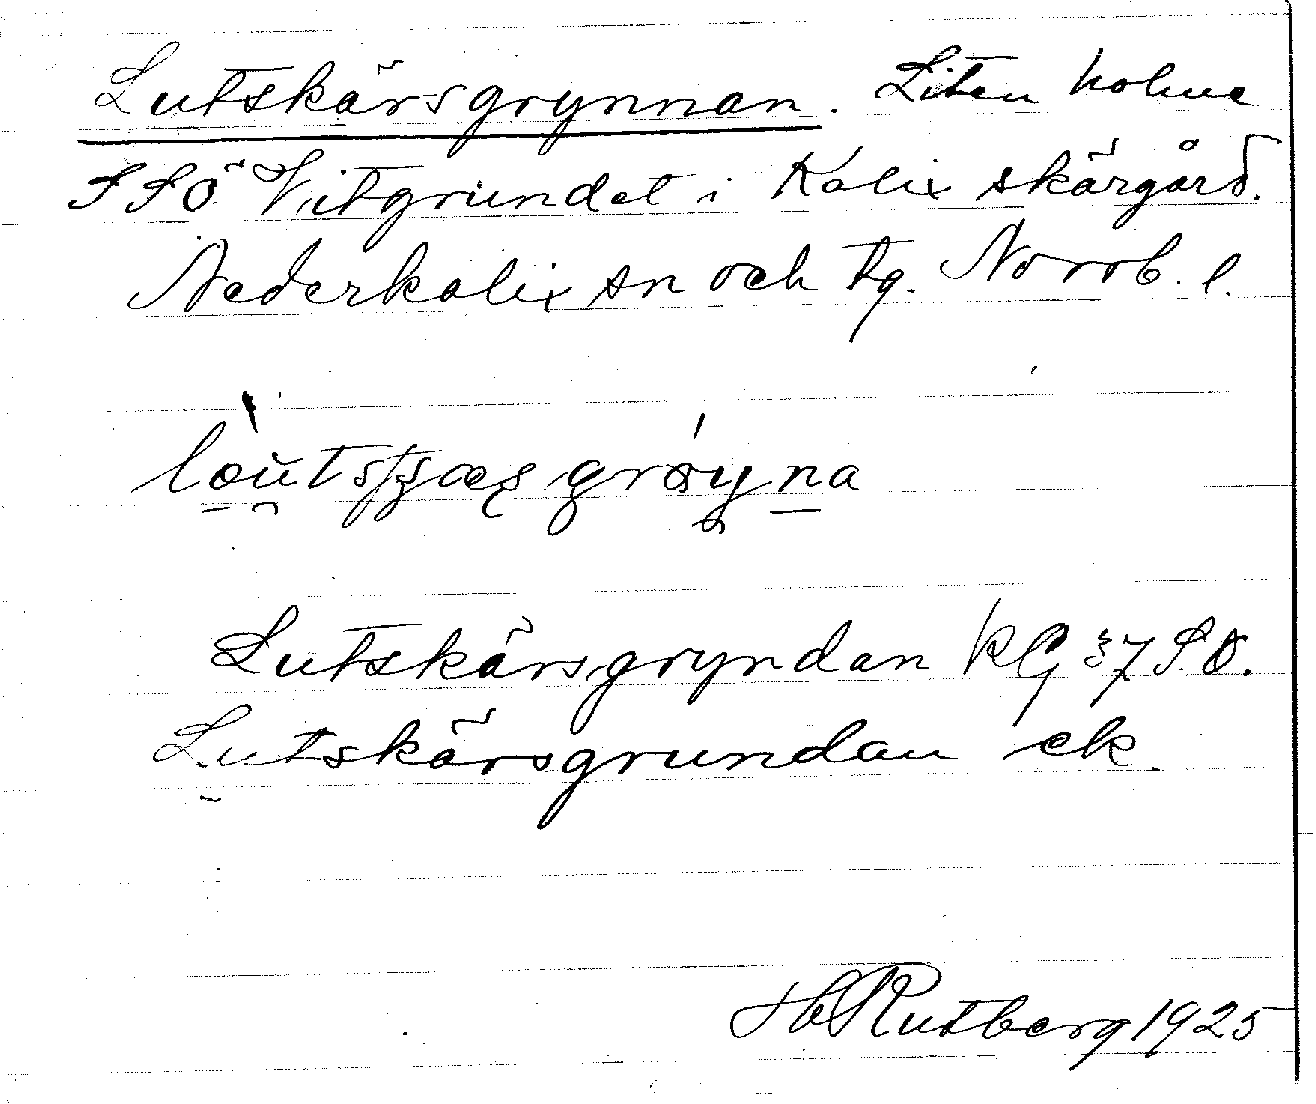 Lutskärsgrynnan. Liten holme
SSÖ Vitgrundet i Kalix skärgård.
Nederkalix sn och tg. Norrb. l.
Lutskärsgryndan KG 37 SO.
Lutskärsgrundan ek.
HRutberg 1925